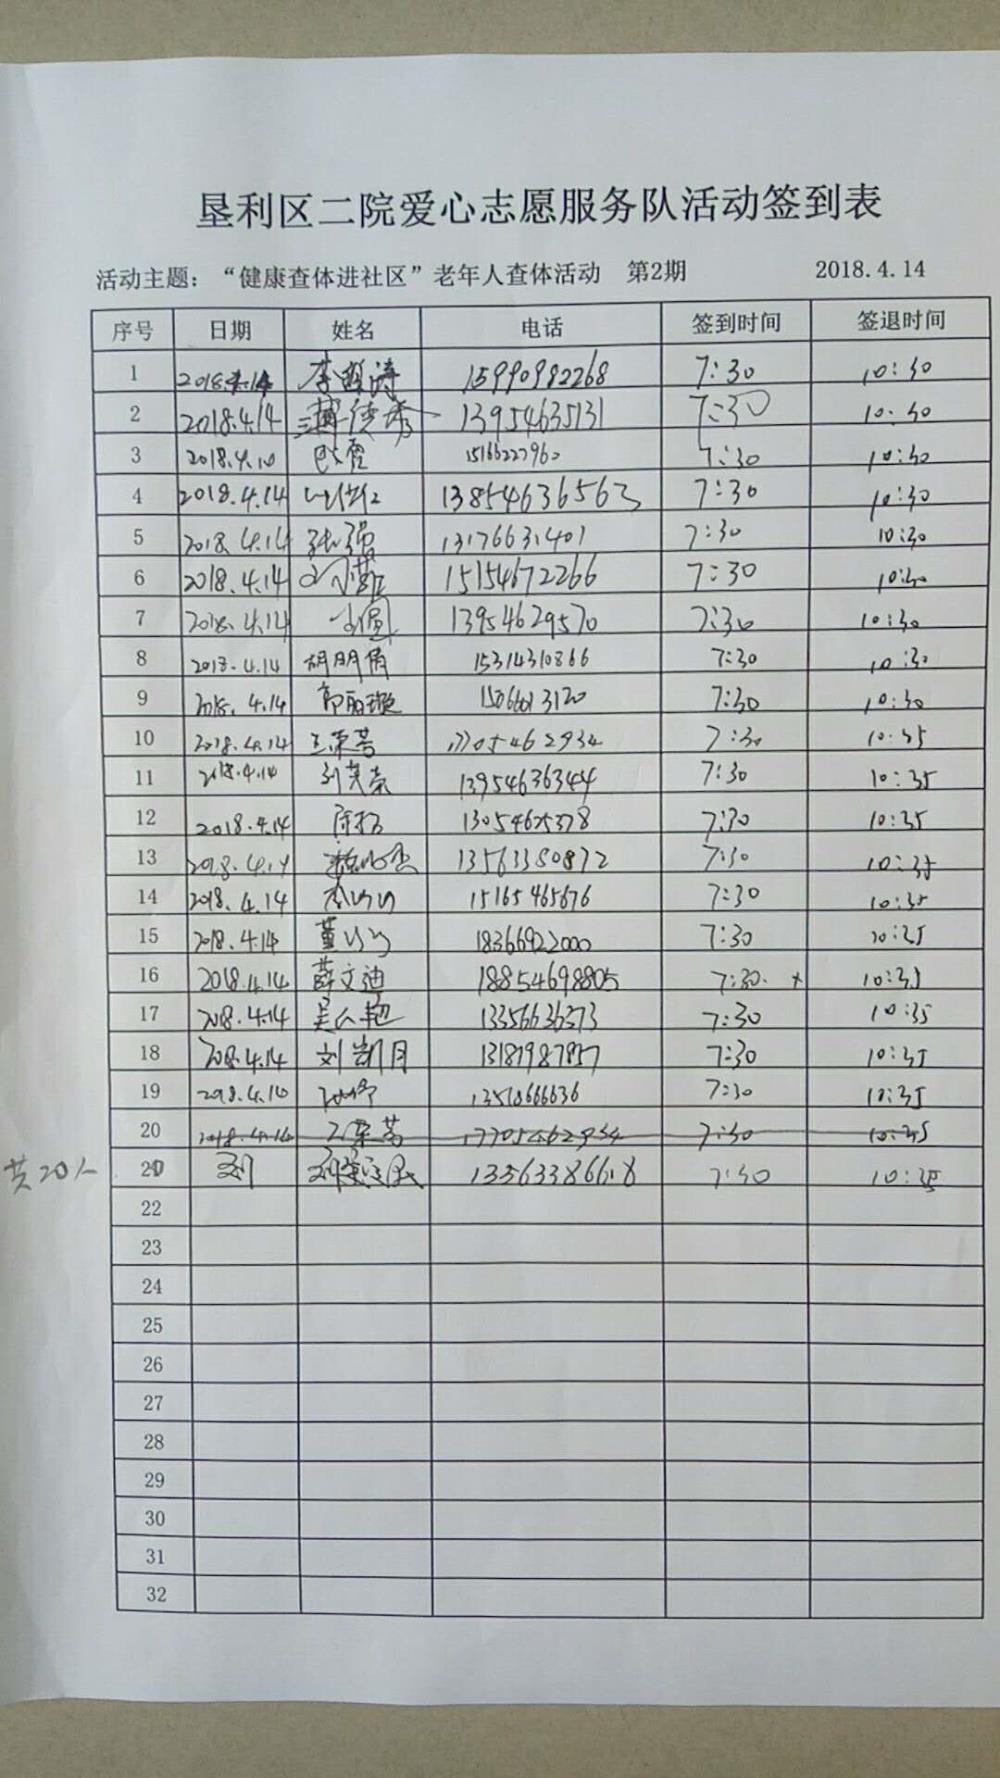 垦利区二院爱心志愿服务队活动签到表
活动主题：“健康查体进社区”老年人查体活动 第2期 2018.4.14
序号 日期 姓名 电话 签到时间 签退时间
1 2018.4.14 李 涛 15990982268 7:30 10:30
2 2018.4.14 薄德秀 13954635131 7:30 10:30
3 2018.4.14 15166227960 7:30 10:30
4 2018.4.14 13854636563 7:30 10:30
5 2018.4.14 张强 13176631401 7:30 10:30
6 2018.4.14 15154672266 7:30 10:30
7 2018.4.14 13954629570 7:30 10:30
8 2018.4.14 胡朋倩 15314310866 7:30 10:30
9 2018.4.14 郭丽璇 7:30 10:30
10 2018.4.14 王荣芳 17705462934 7:30 10:35
11 2018.4.14 刘芙蓉 13954636344 7:30 10:35
12 2018.4.14 13054625378 7:30 10:35
13 2018.4.14 13563380872 7:30 10:35
14 2018.4.14 李 15165465676 7:30 10:35
15 2018.4.14 董 18366922000 7:30 10:35
16 2018.4.14 薛文迪 18854698805 7:30 10:35
17 2018.4.14 吴 艳 13356636373 7:30 10:35
18 2018.4.14 刘凯月 13181987857 7:30 10:35
19 2018.4.14 13518666636 7:30 10:35
20 2018.4.14 王荣芳 17705462934 7:30 10:35
共20人 20 刘 刘 民 13563386618 7:30 10:35
22
23
24
25
26
27
28
29
30
31
32